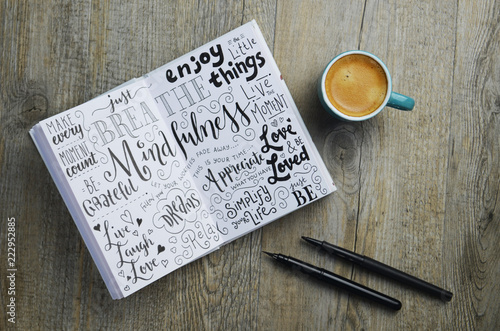 MAKE
every
MOMENT
count
& BE
Grateful
Live
Laugh
Love
just
BREATHE
Mindfulness
DREAMS
Relax
enjoy
the Little
things
LIVE
the
MOMENT
THIS IS YOUR TIME
Appreciate
WHAT YOU HAVE
Love
& BE
Loved
SIMPLIFY
your Life
just
BE
222952885